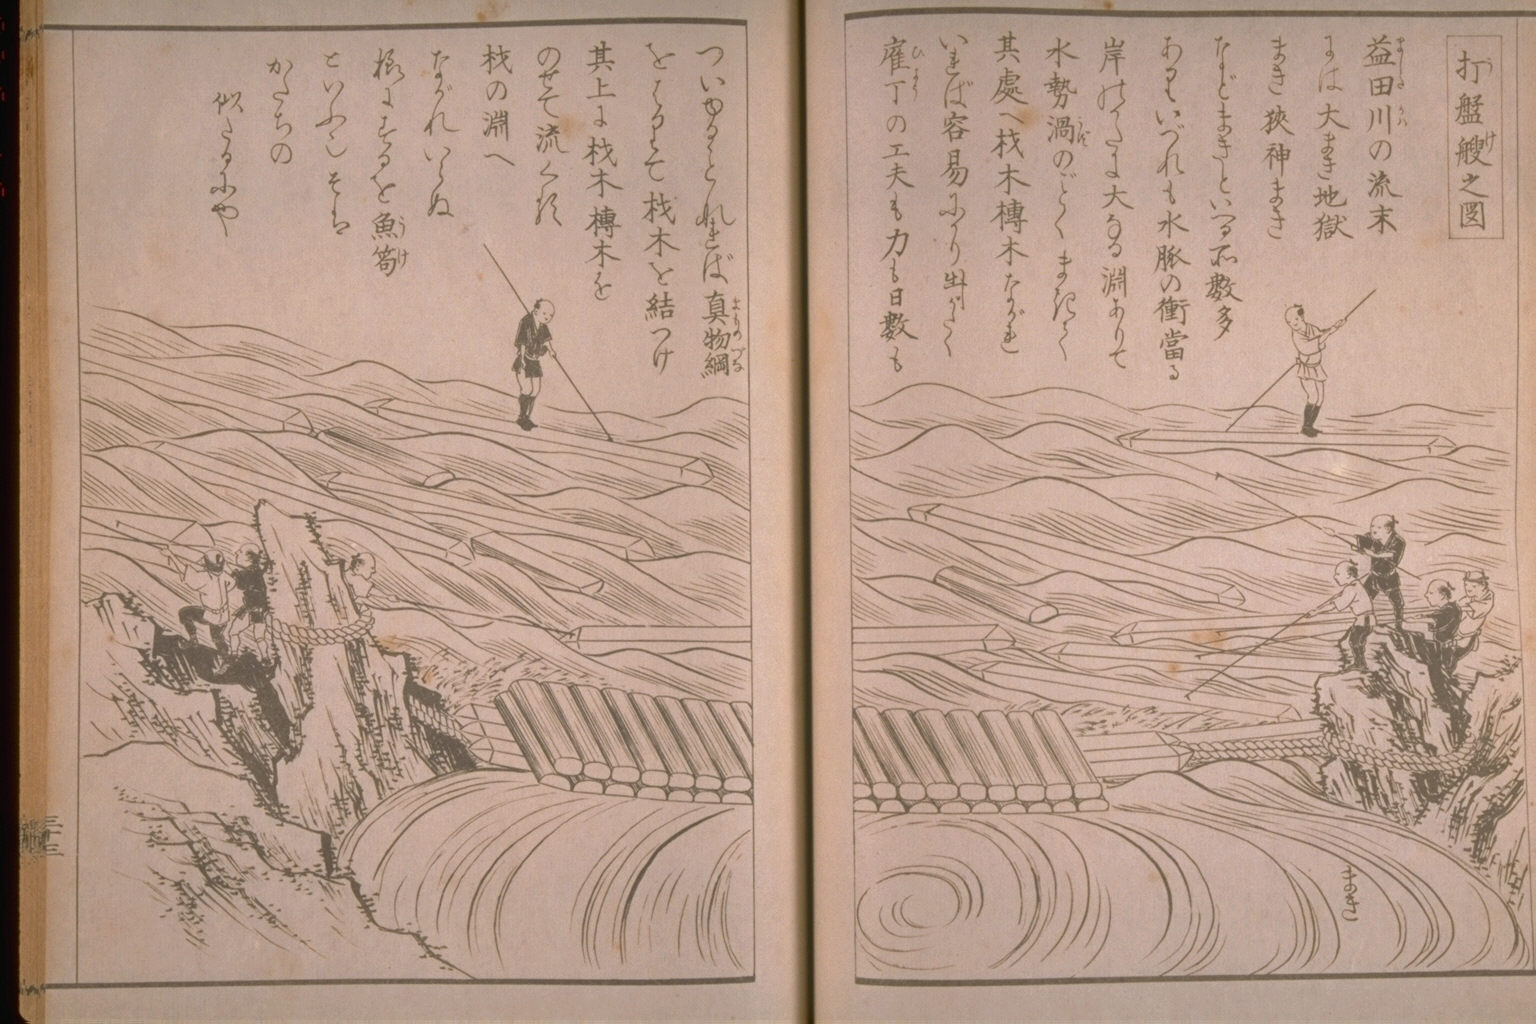 打盤艘之図
益田川の流末
には大まき地獄
まき狭神まき
などまきといへる所數多
ありいづれも水脈の衝當る
岸のかたに大なる淵ありて
水勢渦のごとくまきて
其處へ栰木榑木ながれ
いれば容易にハ出がたく
雇丁の工夫も力も日數も
ついゆることなれば真物綱
をはりて栰木を結つけ
其上に栰木榑木を
のせて流くだし
栰の淵へ
ながれいらぬ
様にするを魚笱
といふこハそも
かたちの
似たるにや
まき